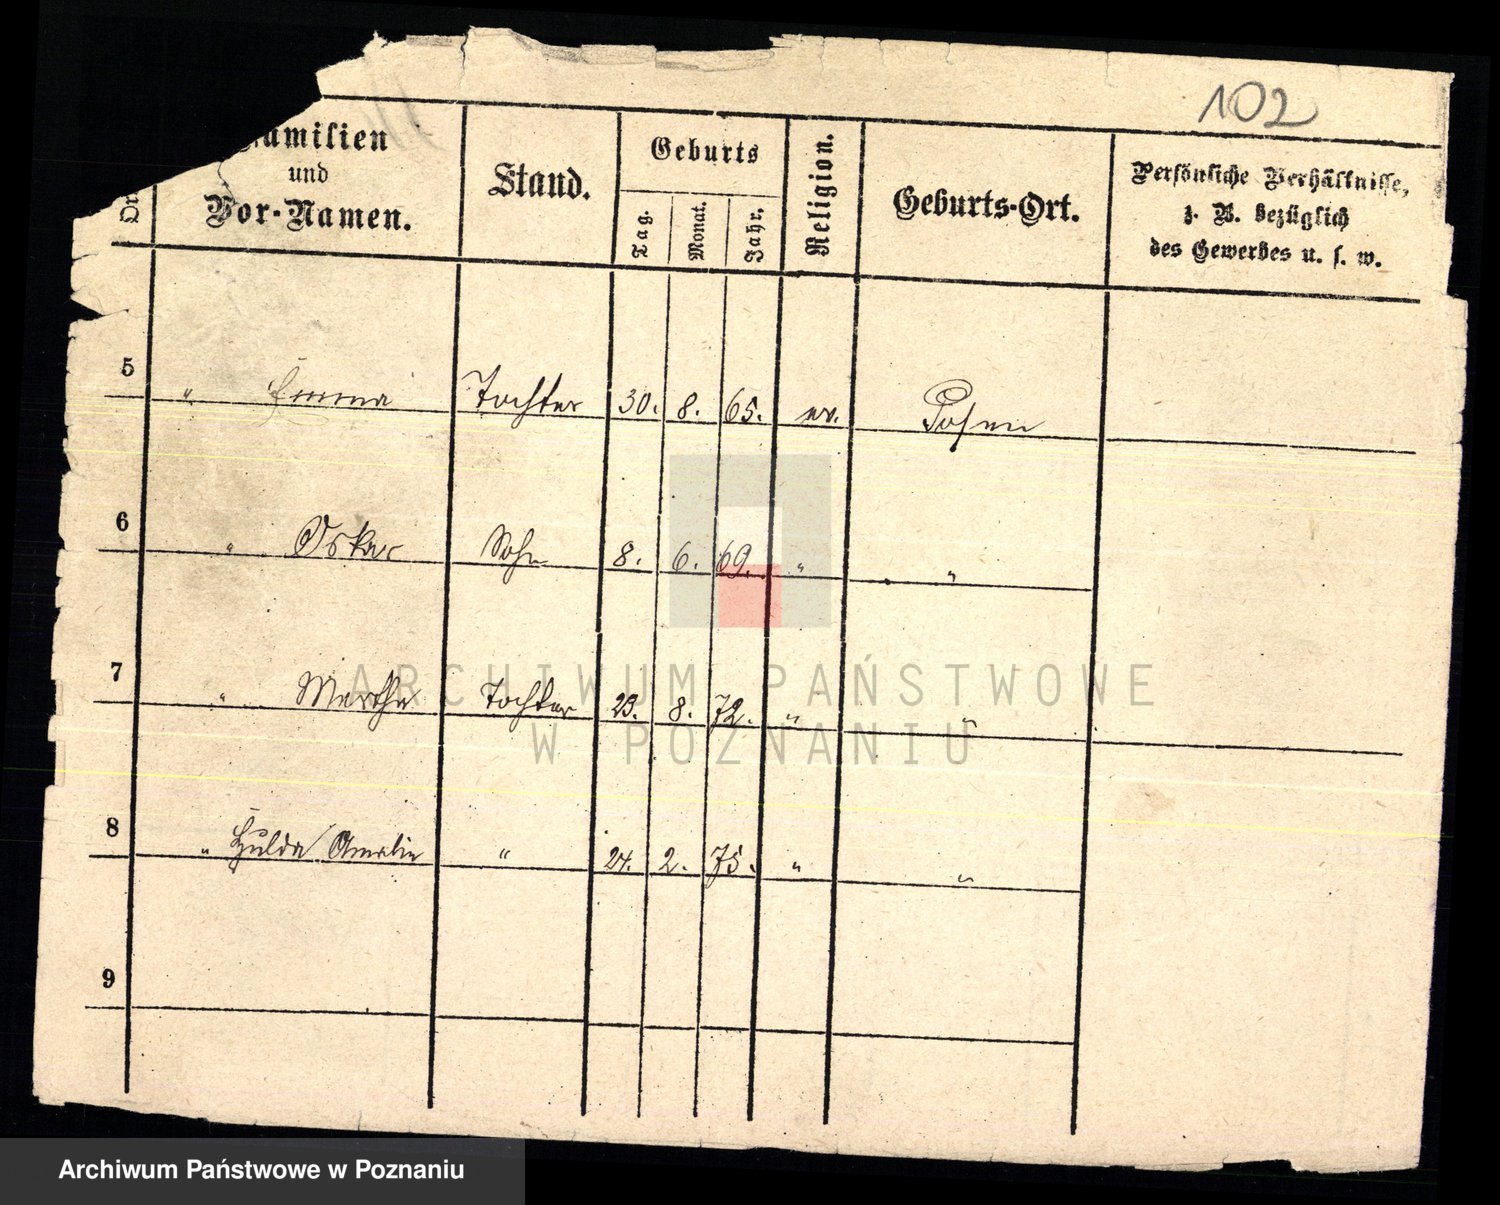 102
Familien und Vor-Namen.
Stand.
Geburts
Tag.
Monat.
Jahr.
Religion.
Geburts-Ort.
Persönliche Verhältnisse,
z. B. bezüglich
des Gewerbes u. s. w.
5 " Emma Tochter 30. 8. 65. ev. Posen
6 " Oskar Sohn 8. 6. 69. " "
7 " Martha Tochter 23. 8. 72. " "
8 " Hulda Amalie " 24. 2. 75. " "
9
ARCHIWUM PAŃSTWOWE
W POZNANIU
Archiwum Państwowe w Poznaniu